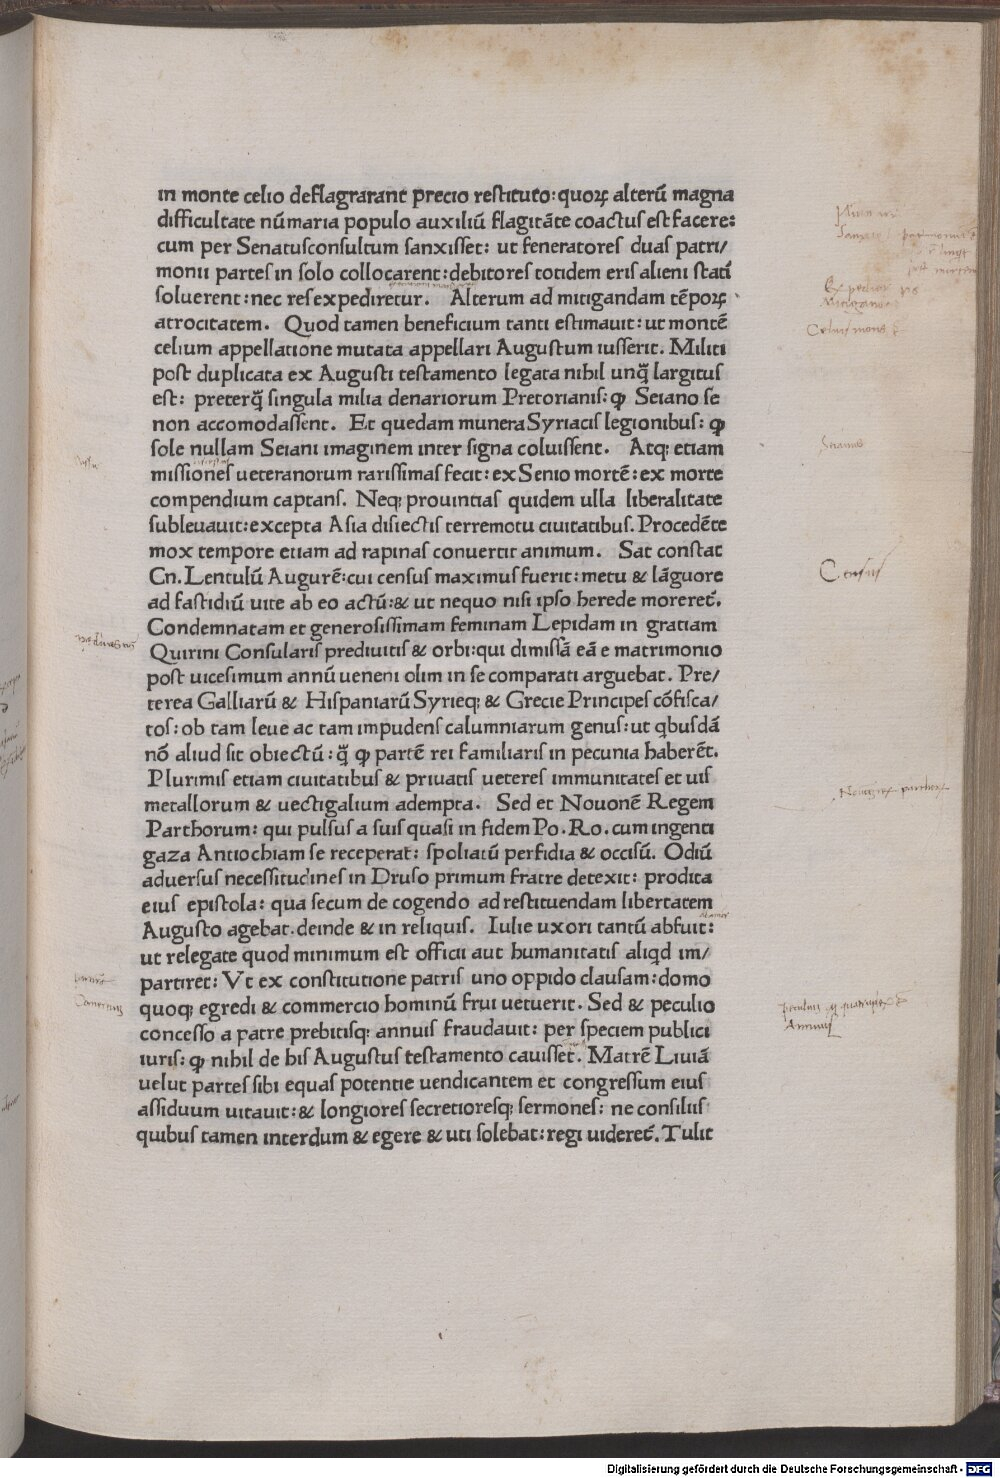 in monte celio deflagrarant precio restituto: quoꝝ alterū magna
difficultate nūmaria populo auxiliū flagitāte coactus est facere:
cum per Senatusconsultum sanxisset: ut feneratores duas patri/
monii partes in solo collocarent: debitores totidem eris alieni statī
soluerent: nec res expediretur. Alterum ad mitigandam tēpoꝝ
atrocitatem. Quod tamen beneficium tanti estimauit: ut montē
celium appellatione mutata appellari Augustum iusserit. Militi
post duplicata ex Augusti testamento legata nihil unq̄ largitus
est: preterq̄ singula milia denariorum Pretorianis: ꝙ Seiano se
non accomodassent. Et quedam munera Syriacis legionibus: ꝙ
sole nullam Seiani imaginem inter signa coluissent. Atq; etiam
missiones ueteranorum rarissimas fecit: ex Senio mortē: ex morte
compendium captans. Neq; prouintias quidem ulla liberalitate
subleuauit: excepta Asia disiectis terremotu ciuitatibus. Procedēte
mox tempore etiam ad rapinas conuertit animum. Sat constat
Cn. Lentulū Augurē: cui census maximus fuerit: metu & lāguore
ad fastidiū uite ab eo actū: & ut nequo nisi ipso herede moreret̄.
Condemnatam et generosissimam feminam Lepidam in gratiam
Quirini Consularis prediuitis & orbi: qui dimissā eā e matrimonio
post uicesimum annū ueneni olim in se comparati arguebat. Pre/
terea Galliarū & Hispaniarū Syrieq; & Grecie Principes cōfisca/
tos: ob tam leue ac tam impudens calumniarum genus: ut q̇busdā
nō aliud sit obiectū: q̄ ꝙ partē rei familiaris in pecunia haberēt.
Plurimis etiam ciuitatibus & priuatis ueteres immunitates et uis
metallorum & uectigalium adempta. Sed et Nouonē Regem
Parthorum: qui pulsus a suis quasi in fidem Po. Ro. cum ingenti
gaza Antiochiam se receperat: spoliatū perfidia & occisū. Odiū
aduersus necessitudines in Druso primum fratre detexit: prodita
eius epistola: qua secum de cogendo ad restituendam libertatem
Augusto agebat. deinde & in reliquis. Iulie uxori tantū abfuit:
ut relegate quod minimum est officii aut humanitatis aliqd im/
partiret: Vt ex constitutione patris uno oppido clausam: domo
quoq; egredi & commercio hominū frui uetuerit. Sed & peculio
concesso a patre prebitisq; annuis fraudauit: per speciem publici
iuris: ꝙ nihil de his Augustus testamento cauisset. Matrē Liuiā
uelut partes sibi equas potentie uendicantem et congressum eius
assiduum uitauit: & longiores secretioresq; sermones: ne consiliis
quibus tamen interdum & egere & uti solebat: regi uideret̄. Tulit
Seianus
Census
Digitalisierung gefördert durch die Deutsche Forschungsgemeinschaft - DFG